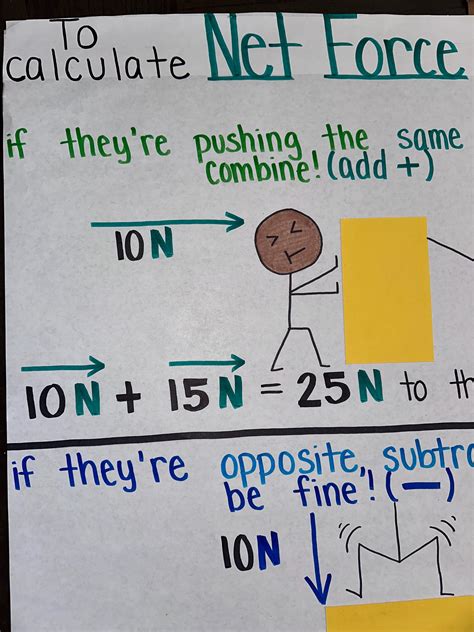 To
calculate Net Force
if they're pushing the same
combine! (add +)
10N
10N + 15N = 25N to th
if they're opposite, subtra
be fine! (—)
10N